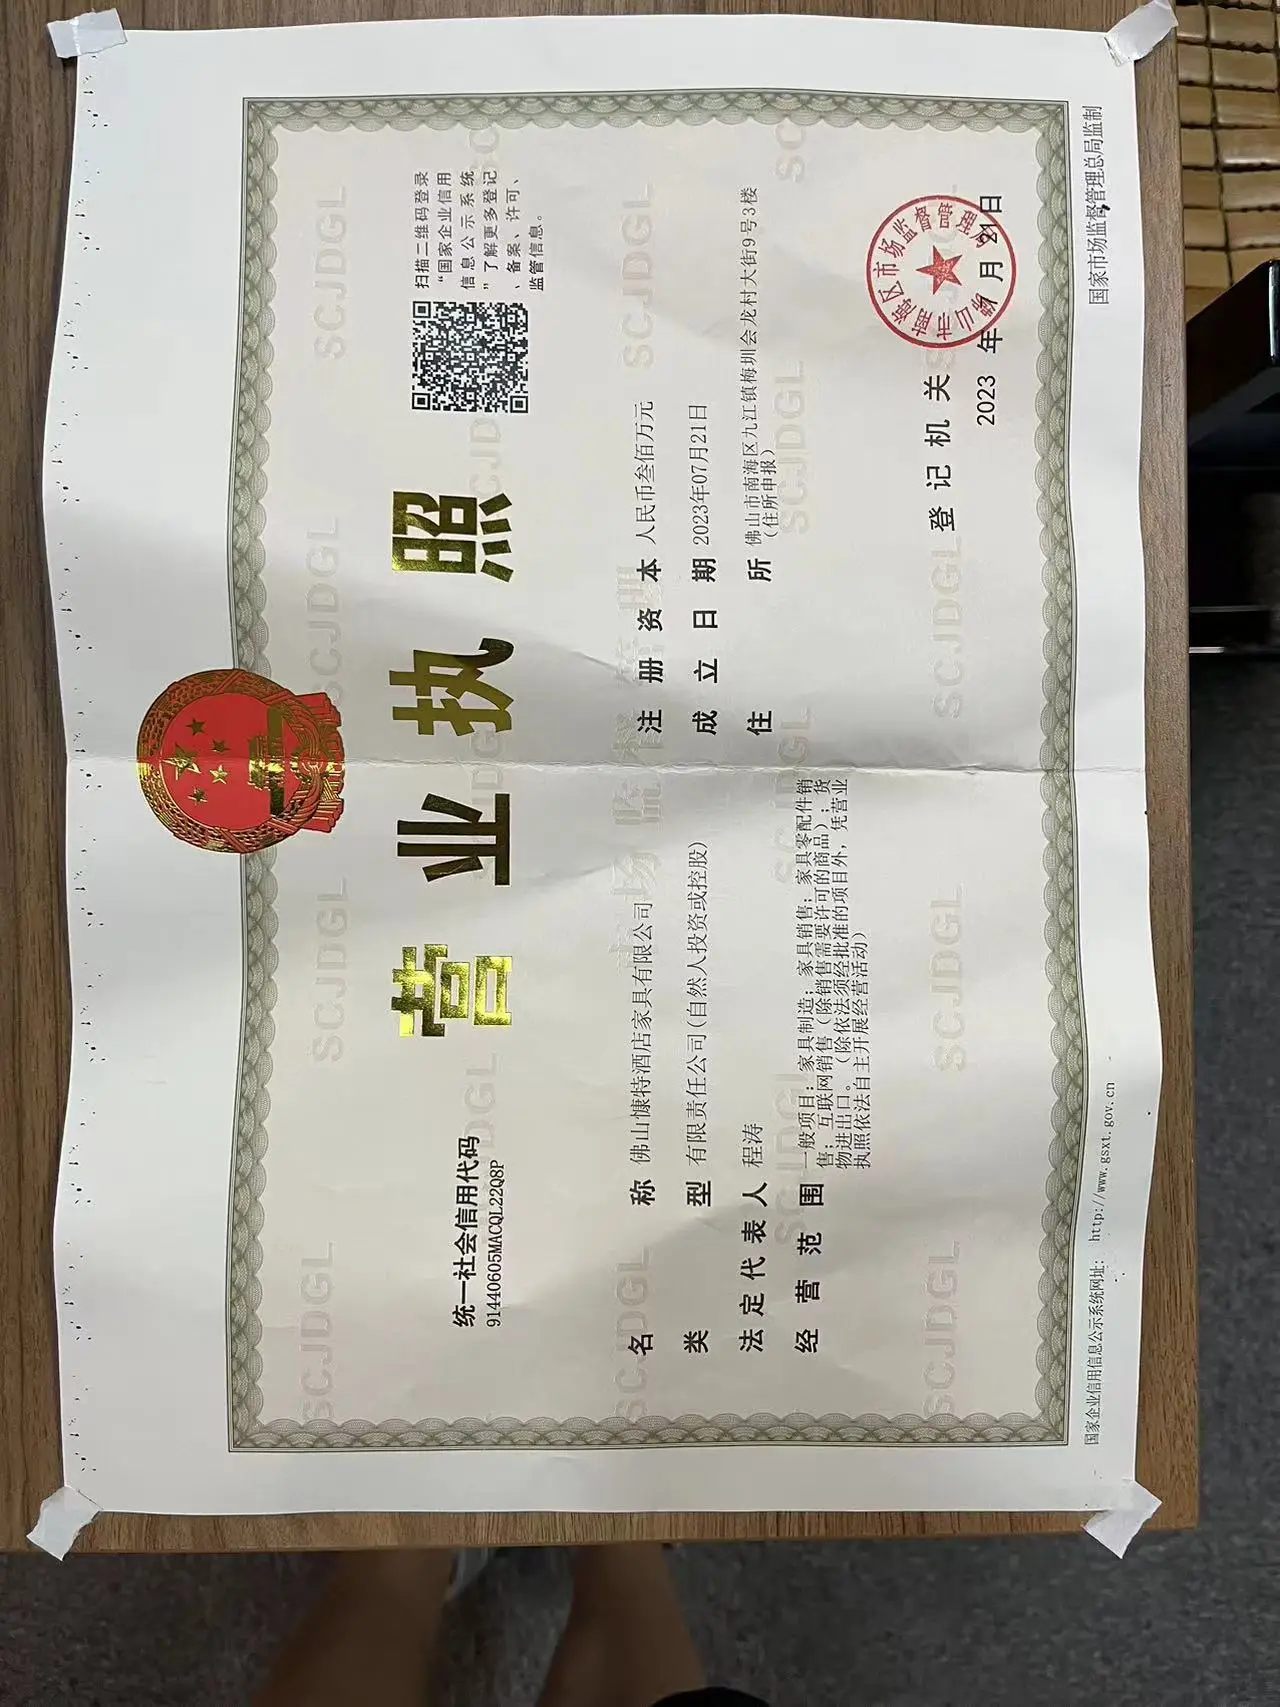 营业执照
统一社会信用代码
91440605MACQL22Q8P
扫描二维码登录
“国家企业信用
信息公示系统
”了解更多登记
、备案、许可、
监管信息。
名称 佛山慷特酒店家具有限公司
类型 有限责任公司(自然人投资或控股)
法定代表人 程涛
经营范围 一般项目：家具制造；家具销售；家具零配件销
售；互联网销售（除销售需要许可的商品）；货
物进出口。（除依法须经批准的项目外，凭营业
执照依法自主开展经营活动）
注册资本 人民币叁佰万元
成立日期 2023年07月21日
住所 佛山市南海区九江镇梅圳会龙村大街9号3楼
（住所申报）
登记机关
2023 年 7 月 21 日
佛山市南海区市场监督管理局
国家企业信用信息公示系统网址： http://www.gsxt.gov.cn
国家市场监督管理总局监制
SCJDGL